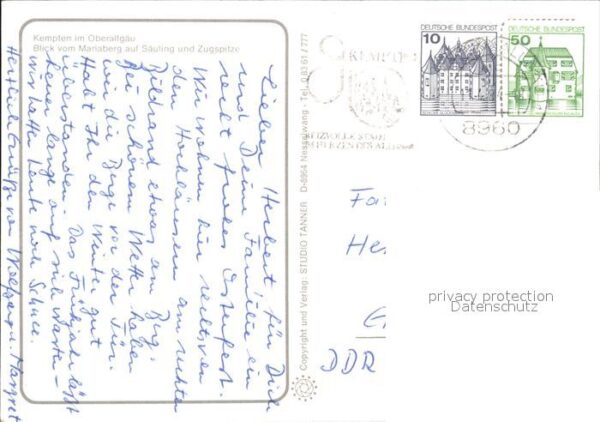 Kempten im Oberallgäu
Blick vom Mariaberg auf Säuling und Zugspitze
Lieber Herbert für Dich
und Deine Familie ein
recht frohes Osterfest.
Wir wohnen hier rechts von
den Hochhäusern am rechten
Bildrand etwas am Berg.
Bei schönem Wetter haben
wir die Berge vor der Tür.
Habt Ihr den Winter gut
überstanden. Das Frühjahr läßt
lange auf sich warten
wir hatten heute noch Schnee.
Herzliche Grüße von Wolfgang u. Margret
Copyright und Verlag: STUDIO TANNER D-8964 Nesselwang · Tel. 0 83 61 / 777
KEMPTEN
REIZVOLLE STADT
IM HERZEN DES ALLGÄUS
DEUTSCHE BUNDESPOST
10
DEUTSCHE BUNDESPOST
50
8960
Fa
He
DDR
privacy protection
Datenschutz